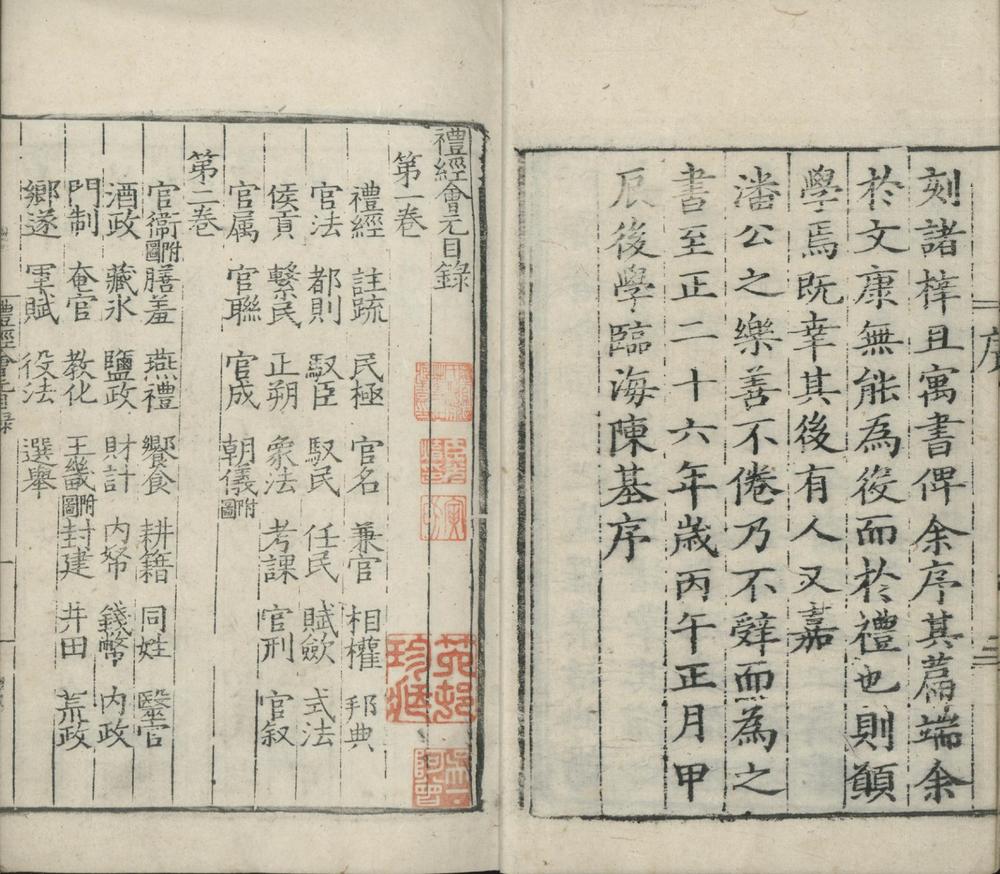 刻諸梓且寓書俾余序其篇端余
於文康無能為役而於禮也則願
學焉既幸其後有人又嘉
潘公之樂善不倦乃不辤而為之
書至正二十六年歲丙午正月甲
辰後學臨海陳基序
序
二
禮經會元目錄
第一卷
禮經 註疏 民極 官名 兼官 相權 邦典
官法 都則 馭臣 馭民 任民 賦歛 式法
侯貢 繫民 正朔 象法 考課 官刑 官叙
官属 官聯 官成 朝儀附圖
第二卷
官衛附圖 膳羞 燕禮 饗食 耕籍 同姓 毉官
酒政 藏氷 鹽政 財計 内帑 錢幣 内政
門制 奄官 教化 王畿附圖 封建 井田 荒政
鄉遂 軍賦 役法 選舉
苑邨珍㳫